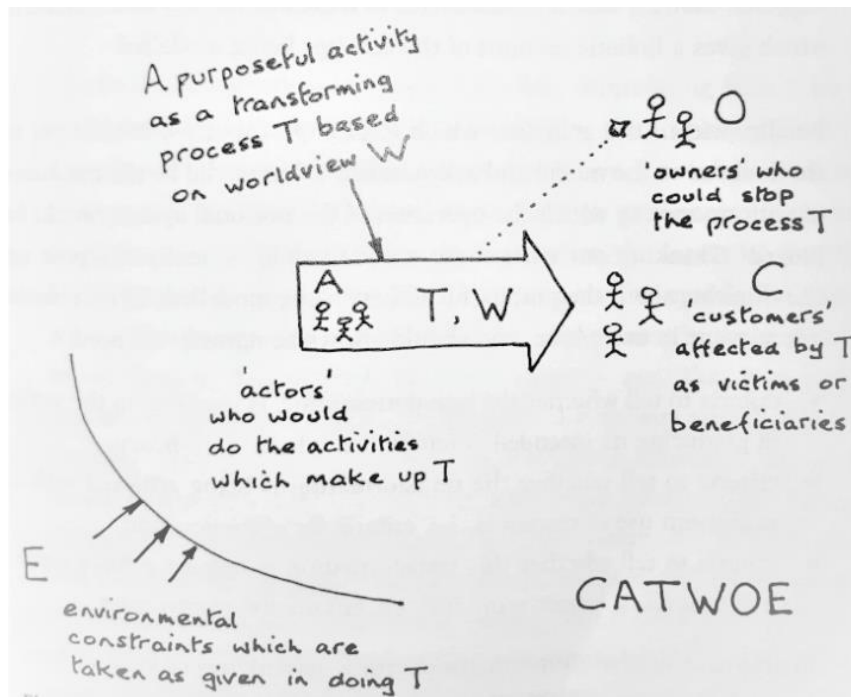 A purposeful activity
as a transforming
process T based
on worldview W
O
'owners' who
could stop
the process T
A
T, W
C
customers
affected by T
as victims or
beneficiaries
'actors'
who would
do the activities
which make up T
E
environmental
constraints which are
taken as given in doing T
CATWOE